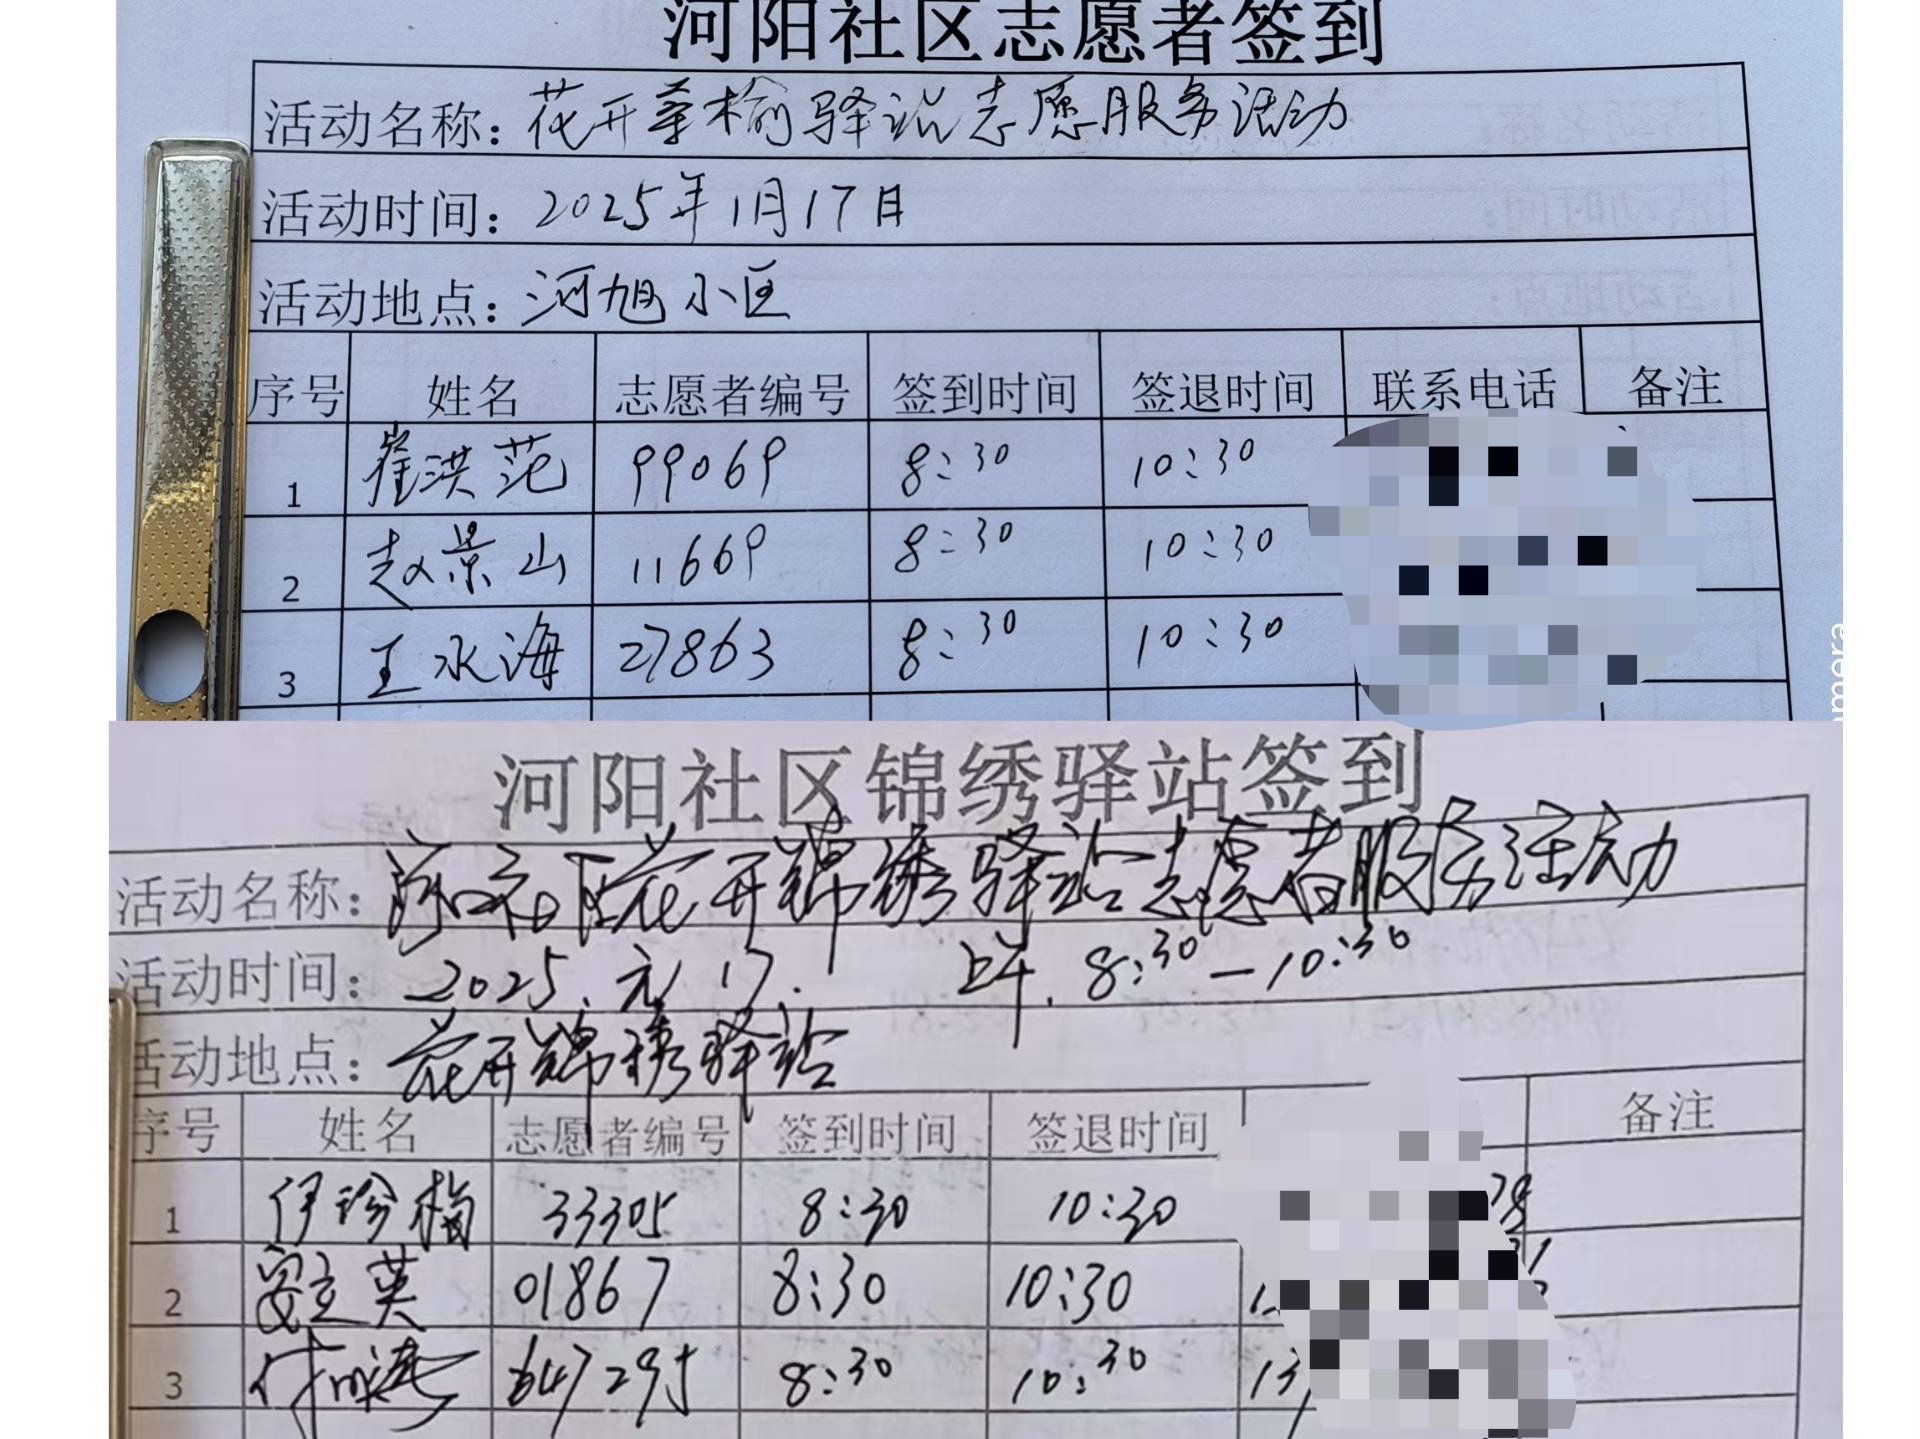 河阳社区志愿者签到
活动名称：花开桑榆驿站志愿服务活动
活动时间：2025年1月17日
活动地点：河旭小区
序号 姓名 志愿者编号 签到时间 签退时间 联系电话 备注
1 崔洪范 99069 8:30 10:30
2 赵景山 11669 8:30 10:30
3 王永海 27863 8:30 10:30
mera
河阳社区锦绣驿站签到
活动名称：花开锦绣驿站志愿者服务活动
活动时间：2025.元.17. 上午.8:30-10:30
活动地点：花开锦绣驿站
序号 姓名 志愿者编号 签到时间 签退时间 备注
1 伊珍梅 33305 8:30 10:30
2 安立英 01867 8:30 10:30
3 8:30 10:30 13